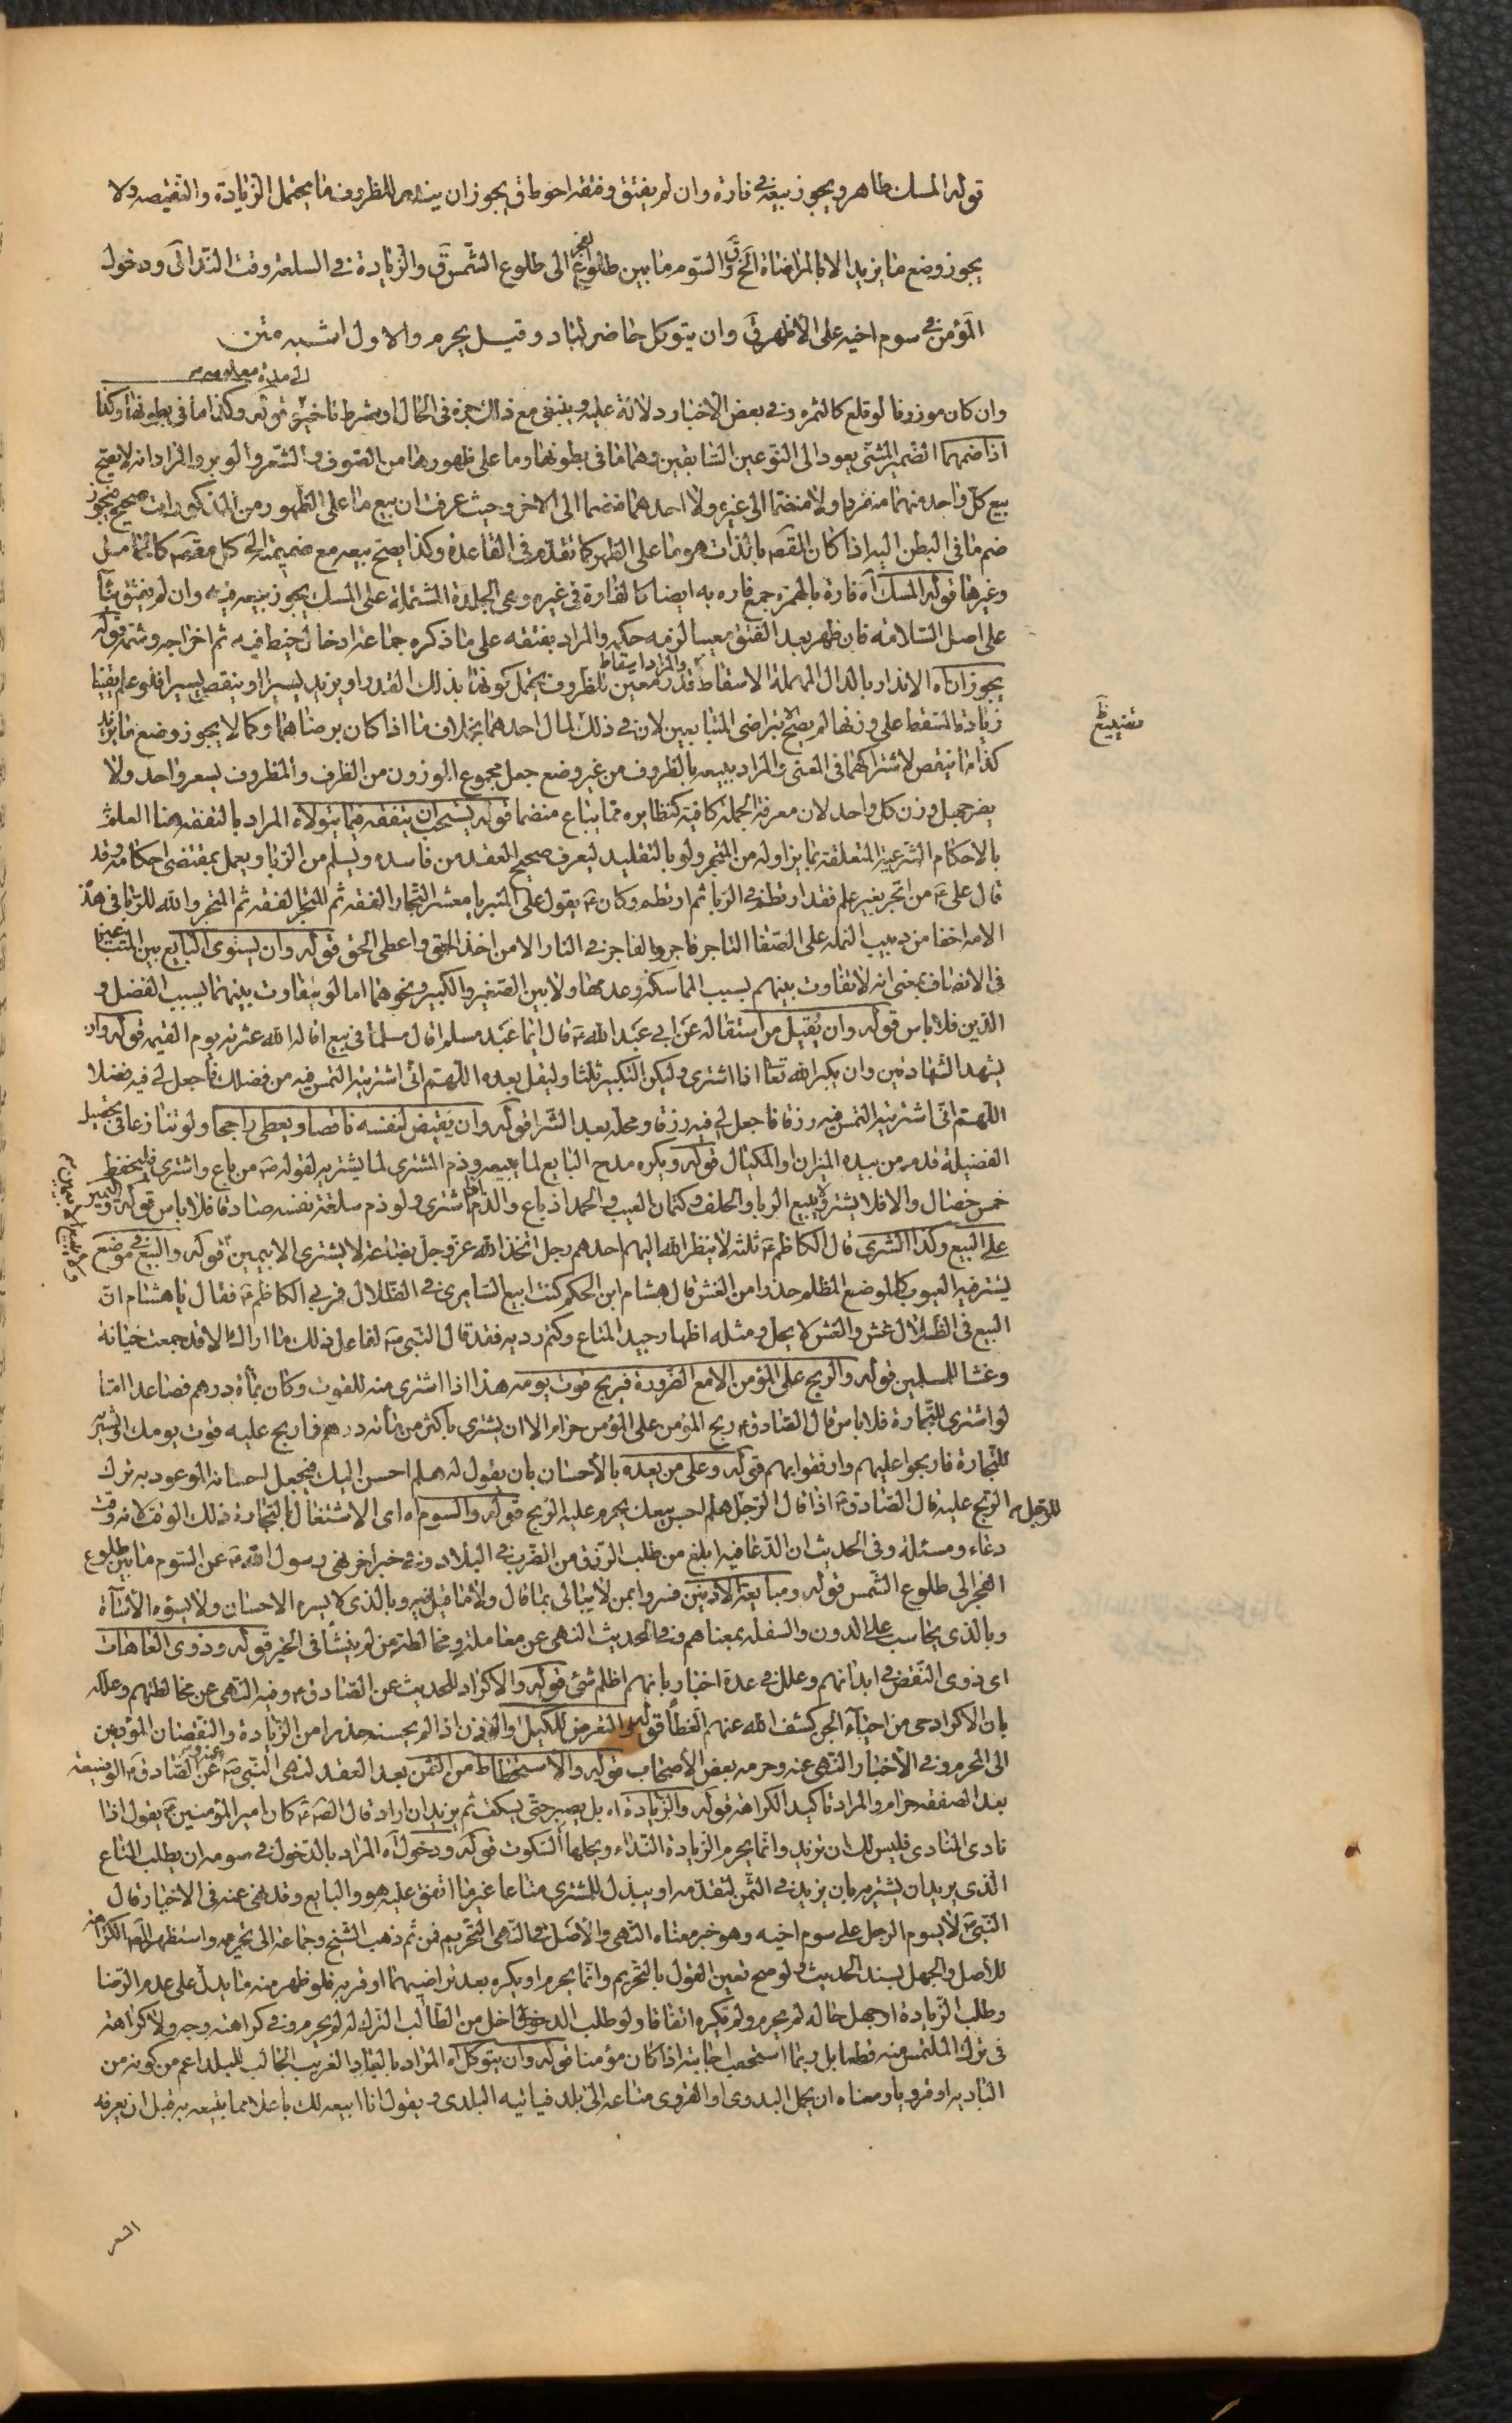 قوله المسك طاهر ويجوز بيعه في فاره وان لم يفتق وفتقه احوط ق يجوز ان يندر للظروف ما يحتمل الزيادة والنقيصه ولا
يجوز وضع ما يزيد الا بالمراضاة الخ ق والسوم ما بين طلوع الفجر الى طلوع الشمس ق والزيادة في السلعة وقت الندا ق ودخول
المؤمن في سوم اخيه على الاظهر ق وان يتوكل حاضر لباد وقيل يحرم والاول اشبه متن
وان كان موزونا لو قلع كالثمره وفي بعض الاخبار دلالة عليه وينبغي مع ذلك جزه في الحال او بشرط تاخيره الى مدة معلومه قوله وكذا ما في بطونها وكذا
اذا ضمهما الضمير المثنى يعود الى النوعين السابقين وهما ما في بطونها وما على ظهورها من الصوف والشعر والوبر والمراد انه لا يصح
بيع كل واحد منهما منفردا ولا منضما الى غيره ولا احدهما منضما الى الاخر وحيث عرفت ان بيع ما على الظهور من المذكورات صحيح فيجوز
ضم ما في البطن اليه اذا كان المقصود بالذات هو ما على الظهر كما تقدم في القاعدة وكذا يصح بيعه مع ضميمته الى كل مقصود كالثمامثل
وغيرها قوله المسك آه فاره بالهمزه جمع فاره به ايضا كالفارة في غيره وهي الجلدة المشتملة على المسك يجوز بيعه فيه وان لم يفتق بناء
على اصل السلامه فان ظهر بعد الفتق معيبا لزمه حكمه والمراد بفتقه على ما ذكره جماعة ادخال خيط فيه ثم اخراجه وشمه قوله
يجوز ان آه الاندار بالدال المهملة الاسقاط والمراد اسقاط قدر معين للظروف يحتمل كونها بذلك القدر او يزيد يسيرا او ينقص يسيرا فلو علم يقينا
زيادة المسقط على وزنها لم يصح الا بتراضي المتبايعين لان في ذلك لمال احدهما بخلاف ما اذا كان برضاهما وكما لا يجوز وضع ما يزيد
كذا ما ينقص لاشتراكهما في المعنى والمراد ببيعه بالظروف من غير وضع جعل مجموع الموزون من الظرف والمظروف بسعر واحد ولا
يضر جهل وزن كل واحد لان معرفة الجملة كافية كنظايره مما يباع منضما قوله يستحب ان يتفقه فيما يتولاه المراد بالتفقه هنا العلم
بالاحكام الشرعية المتعلقة بما يزاوله من المتجر ولو بالتقليد ليعرف صحيح العقد من فاسده ويسلم من الربا ويعمل بمقتضى احكامه وقد
قال علي ع من اتجر بغير علم فقد ارتطم في الربا ثم ارتطم وكان ع يقول على المنبر يا معشر التجار الفقه ثم المتجر الفقه ثم المتجر والله للربا في هذه
الامه اخفا من دبيب النمله على الصفا التاجر فاجر والفاجر في النار الا من اخذ الحق واعطى الحق قوله وان يستوي البايع بين المتبايعين
في الانصاف بمعنى انه لا تفاوت بينهم بسبب المماسكة وعدمها ولا بين الصغير والكبير ونحوهما اما لو يتفاوت بينهما بسبب الفضل و
الدين فلا باس قوله وان يقيل من استقاله عن ابي عبد الله ع قال ايما عبد مسلم اقال مسلما في بيع اقاله الله عثرته يوم القيمه قوله وان
يشهد الشهادتين وان يكبر الله تعا اذا اشترى وليكن التكبير ثلثا وليقل بعده اللهم اني اشتريته التمس فيه من فضلك فاجعل لي فيه فضلا
اللهم اني اشتريته التمس فيه رزقا فاجعل لي فيه رزقا ومحله بعد الشرا قوله وان يقبض لنفسه ناقصا ويعطي راجحا ولو تنازعا في تحصيل
الفضيلة قدم من بيده الميزان او المكيال قوله ويكره مدح البايع لما يبيعه وذم المشتري لما يشتريه لقوله ص من باع واشترى فليحفظ
خمس خصال والا فلا يشتر ولا يبيع الربا والحلف وكتمان العيب والحمد اذا باع والذم اذا اشترى ولو ذم سلعة نفسه صادقا فلا باس قوله واليمين
على البيع وكذا الشرى قال الكاظم ع ثلثه لا ينظر الله اليهم احدهم رجل اتخذ الله عز وجل بضاعة لا يشتري الا بيمين ولا يبيع الا بيمين قوله والبيع في موضع
يستر فيه العيوب كالموضع المظلم حذرا من الغش قال هشام ابن الحكم كنت ابيع السابري في الظلال فمر بي الكاظم ع فقال يا هشام ان
البيع في الظلال غش والغش لا يحل ومثله اظهار جيد المتاع وكتم رديه فقد قال النبي ص لفاعل ذلك ما اراك الا قد جمعت خيانة
وغشا للمسلمين قوله والربح على المؤمن الا مع الضرورة فيربح قوت يومه هذا اذا اشترى منه للقوت وكان بمأة درهم فصاعدا اما
لو اشترى للتجارة فلا باس قال الصادق ع ربح المؤمن على المؤمن حرام الا ان يشتري باكثر من مأته درهم فاربح عليه قوت يومك او يشتريه
للتجارة فاربحوا عليهم وارفقوا بهم قوله وعلى من يعده بالاحسان بان يقول له هلم احسن اليك فيجعل احسانه الموعود به ترك
الربح عليه قال الصادق ع اذا قال الرجل للرجل هلم احسن بيعك يحرم عليه الربح قوله والسوم اه اي الاشتغال بالتجارة ذلك الوقت لانه وقت
دعاء ومسئلة وفي الحديث ان الدعا فيه ابلغ من طلب الرزق من الضرب في البلاد وفي خبر اخر نهى رسول الله ص عن السوم ما بين طلوع
الفجر الى طلوع الشمس قوله ومبايعة الادنين فسروا بمن لا يبالي بما قال ولا ما قيل فيه وبالذي لا يسره الاحسان ولا يسؤه الاساءة
وبالذي يحاسب على الدون والسفله بمعناهم وفي الحديث النهي عن معاملة ومخالطة من لم ينشأ في الخير قوله وذوي العاهات
اي ذوي النقص في ابدانهم وعلل في عدة اخبار بانهم اظلم شئ قوله والاكراد للحديث عن الصادق ع وفيه النهي عن مخالطتهم وعلله
بان الاكراد حي من احياء الجن كشف الله عنهم الغطأ قوله والتعرض للكيل والوزن اذا لم يحسنه حذرا من الزيادة والنقصان المؤديين
الى المحرم وفي الاخبار النهي عنه وحرمه بعض الاصحاب قوله والاستحطاط من الثمن بعد العقد لنهي النبي ص عنه وعن الصادق ع الوضيعة
بعد الصفقه حرام والمراد تاكيد الكراهة قوله والزيادة اه بل يصبر حتى يسكت ثم يزيد ان اراد قال الص ع كان امير المؤمنين ع يقول اذا
نادى المنادي فليس لك ان تزيد وانما يحرم الزيادة النداء ويحلها السكوت قوله ودخول آه المراد بالدخول في سومه ان يطلب المتاع
الذي يريد ان يشتريه بان يزيد في الثمن ليقدمه او يبذل للمشتري متاعا غير ما اتفق عليه هو والبايع وقد نهى عنه في الاخبار قال
النبي ص لا يسوم الرجل على سوم اخيه وهو خبر معناه النهي والاصل في النهي التحريم فمن ثم ذهب الشيخ وجماعة الى تحريمه واستظهر المص الكراهة
للأصل والجهل بسند الحديث ولو صح تعين القول بالتحريم وانما يحرم او يكره بعد تراضيهما او قربه فلو ظهر منه ما يدل على عدم الرضا
وطلب الزيادة او جهل حاله لم يحرم ولم يكره اتفاقا ولو طلب الداخل من الطالب الترك له لم يحرم وفي كراهته وجه ولا كراهة
في ترك الملتمس منه قطعا بل ربما استحب اجابته اذا كان مؤمنا قوله وان يتوكل آه المراد بالباد الغريب الجالب للبلد اعم من كونه من
البادية او قرويا ومعناه ان يحمل البدوي او القروي متاعه الى بلد فيأتيه البلدي ويقول انا ابيعه لك باعلا مما تبيعه به قبل ان يعرفه
السعر